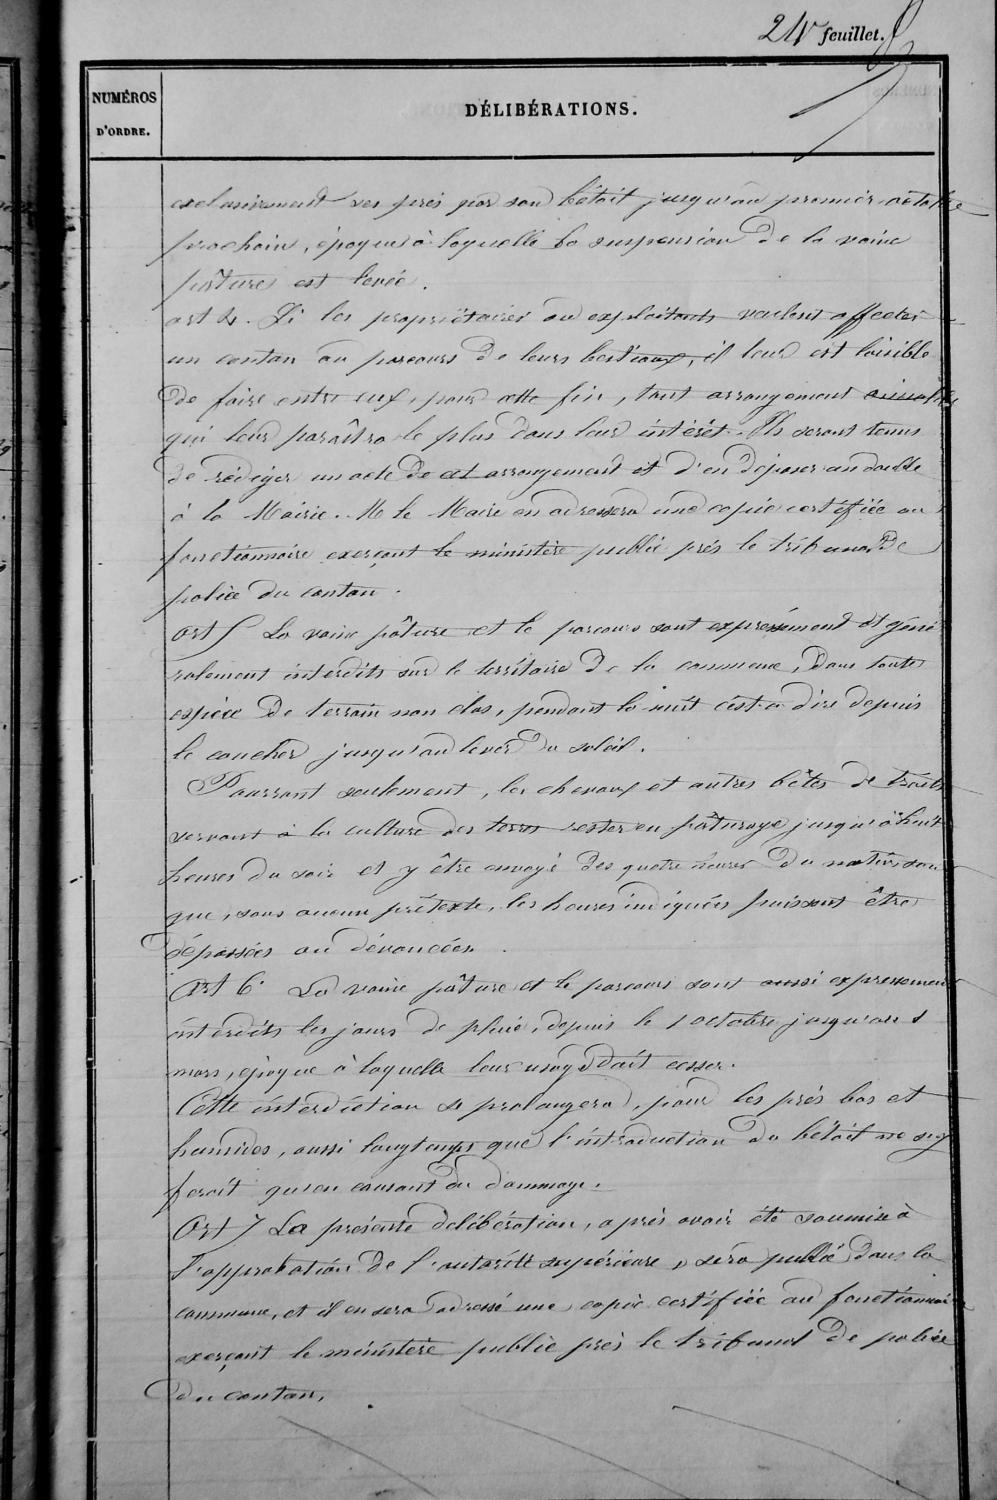 24e feuillet.
NUMÉROS
D'ORDRE.
DÉLIBÉRATIONS.
exclusivement ses prés par son bétail jusqu'au premier octobre
prochain, époque à laquelle la suspension de la vaine
pâture est levée.
art 4. Si les propriétaires ou exploitants veulent affecter
un canton au parcours de leurs bestiaux, il leur est loisible
de faire entre eux, pour cette fin, tout arrangement amiable
qui leur paraîtra le plus dans leur intérêt. Ils seront tenus
de rédiger un acte de cet arrangement et d'en déposer un double
à la Mairie. M le Maire en adressera une copie certifiée au
fonctionnaire exerçant le ministère public près le tribunal de
police du canton.
art 5 La vaine pâture et le parcours sont expressément et géné
ralement interdits sur le territoire de la commune, dans toute
espèce de terrain non clos, pendant la nuit c'est à dire depuis
le coucher jusqu'au lever du soleil.
Pourront seulement, les chevaux et autres bêtes de traits
servant à la culture des terres rester en pâturage jusqu'à huit
heures du soir et y être envoyé dès quatre heures du matin, sans
que, sous aucun prétexte, les heures indiquées puissent être
dépassées ou devancées.
Art 6. La vaine pâture et le parcours sont aussi expressement
interdits les jours de pluie, depuis le 1 octobre jusqu'au 1
mars, époque à laquelle leur usage doit cesser.
Cette interdiction se prolongera, pour les prés bas et
humides, aussi longtemps que l'introduction du bétail ne s'y
ferait qu'en causant du dommage.
Art 7 La présente délibération, après avoir été soumise à
l'approbation de l'autorité supérieure, sera publié dans la
commune, et il en sera adressé une copie certifiée au fonctionnaire
exerçant le ministère public près le tribunal de police
du canton,